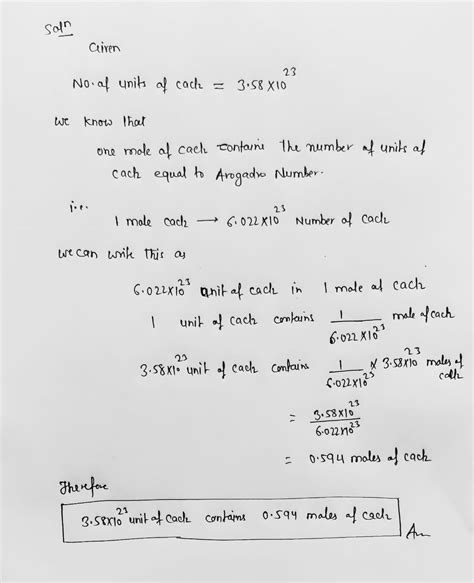 Solⁿ
Given
No. of units of cacl₂ = 3.58 × 10²³
we know that
one mole of cacl₂ contains the number of units of
cacl₂ equal to Avogadro Number.
i.e.
1 mole cacl₂ → 6.022×10²³ Number of cacl₂
we can write this as
6.022×10²³ unit of cacl₂ in 1 mole of cacl₂
1 unit of cacl₂ contains 1/6.022×10²³ mole of cacl₂
3.58×10²³ unit of cacl₂ contains 1/6.022×10²³ × 3.58×10²³ moles of cacl₂
= 3.58×10²³/6.022×10²³
= 0.594 moles of cacl₂
Therefore
3.58×10²³ unit of cacl₂ contains 0.594 moles of cacl₂
An